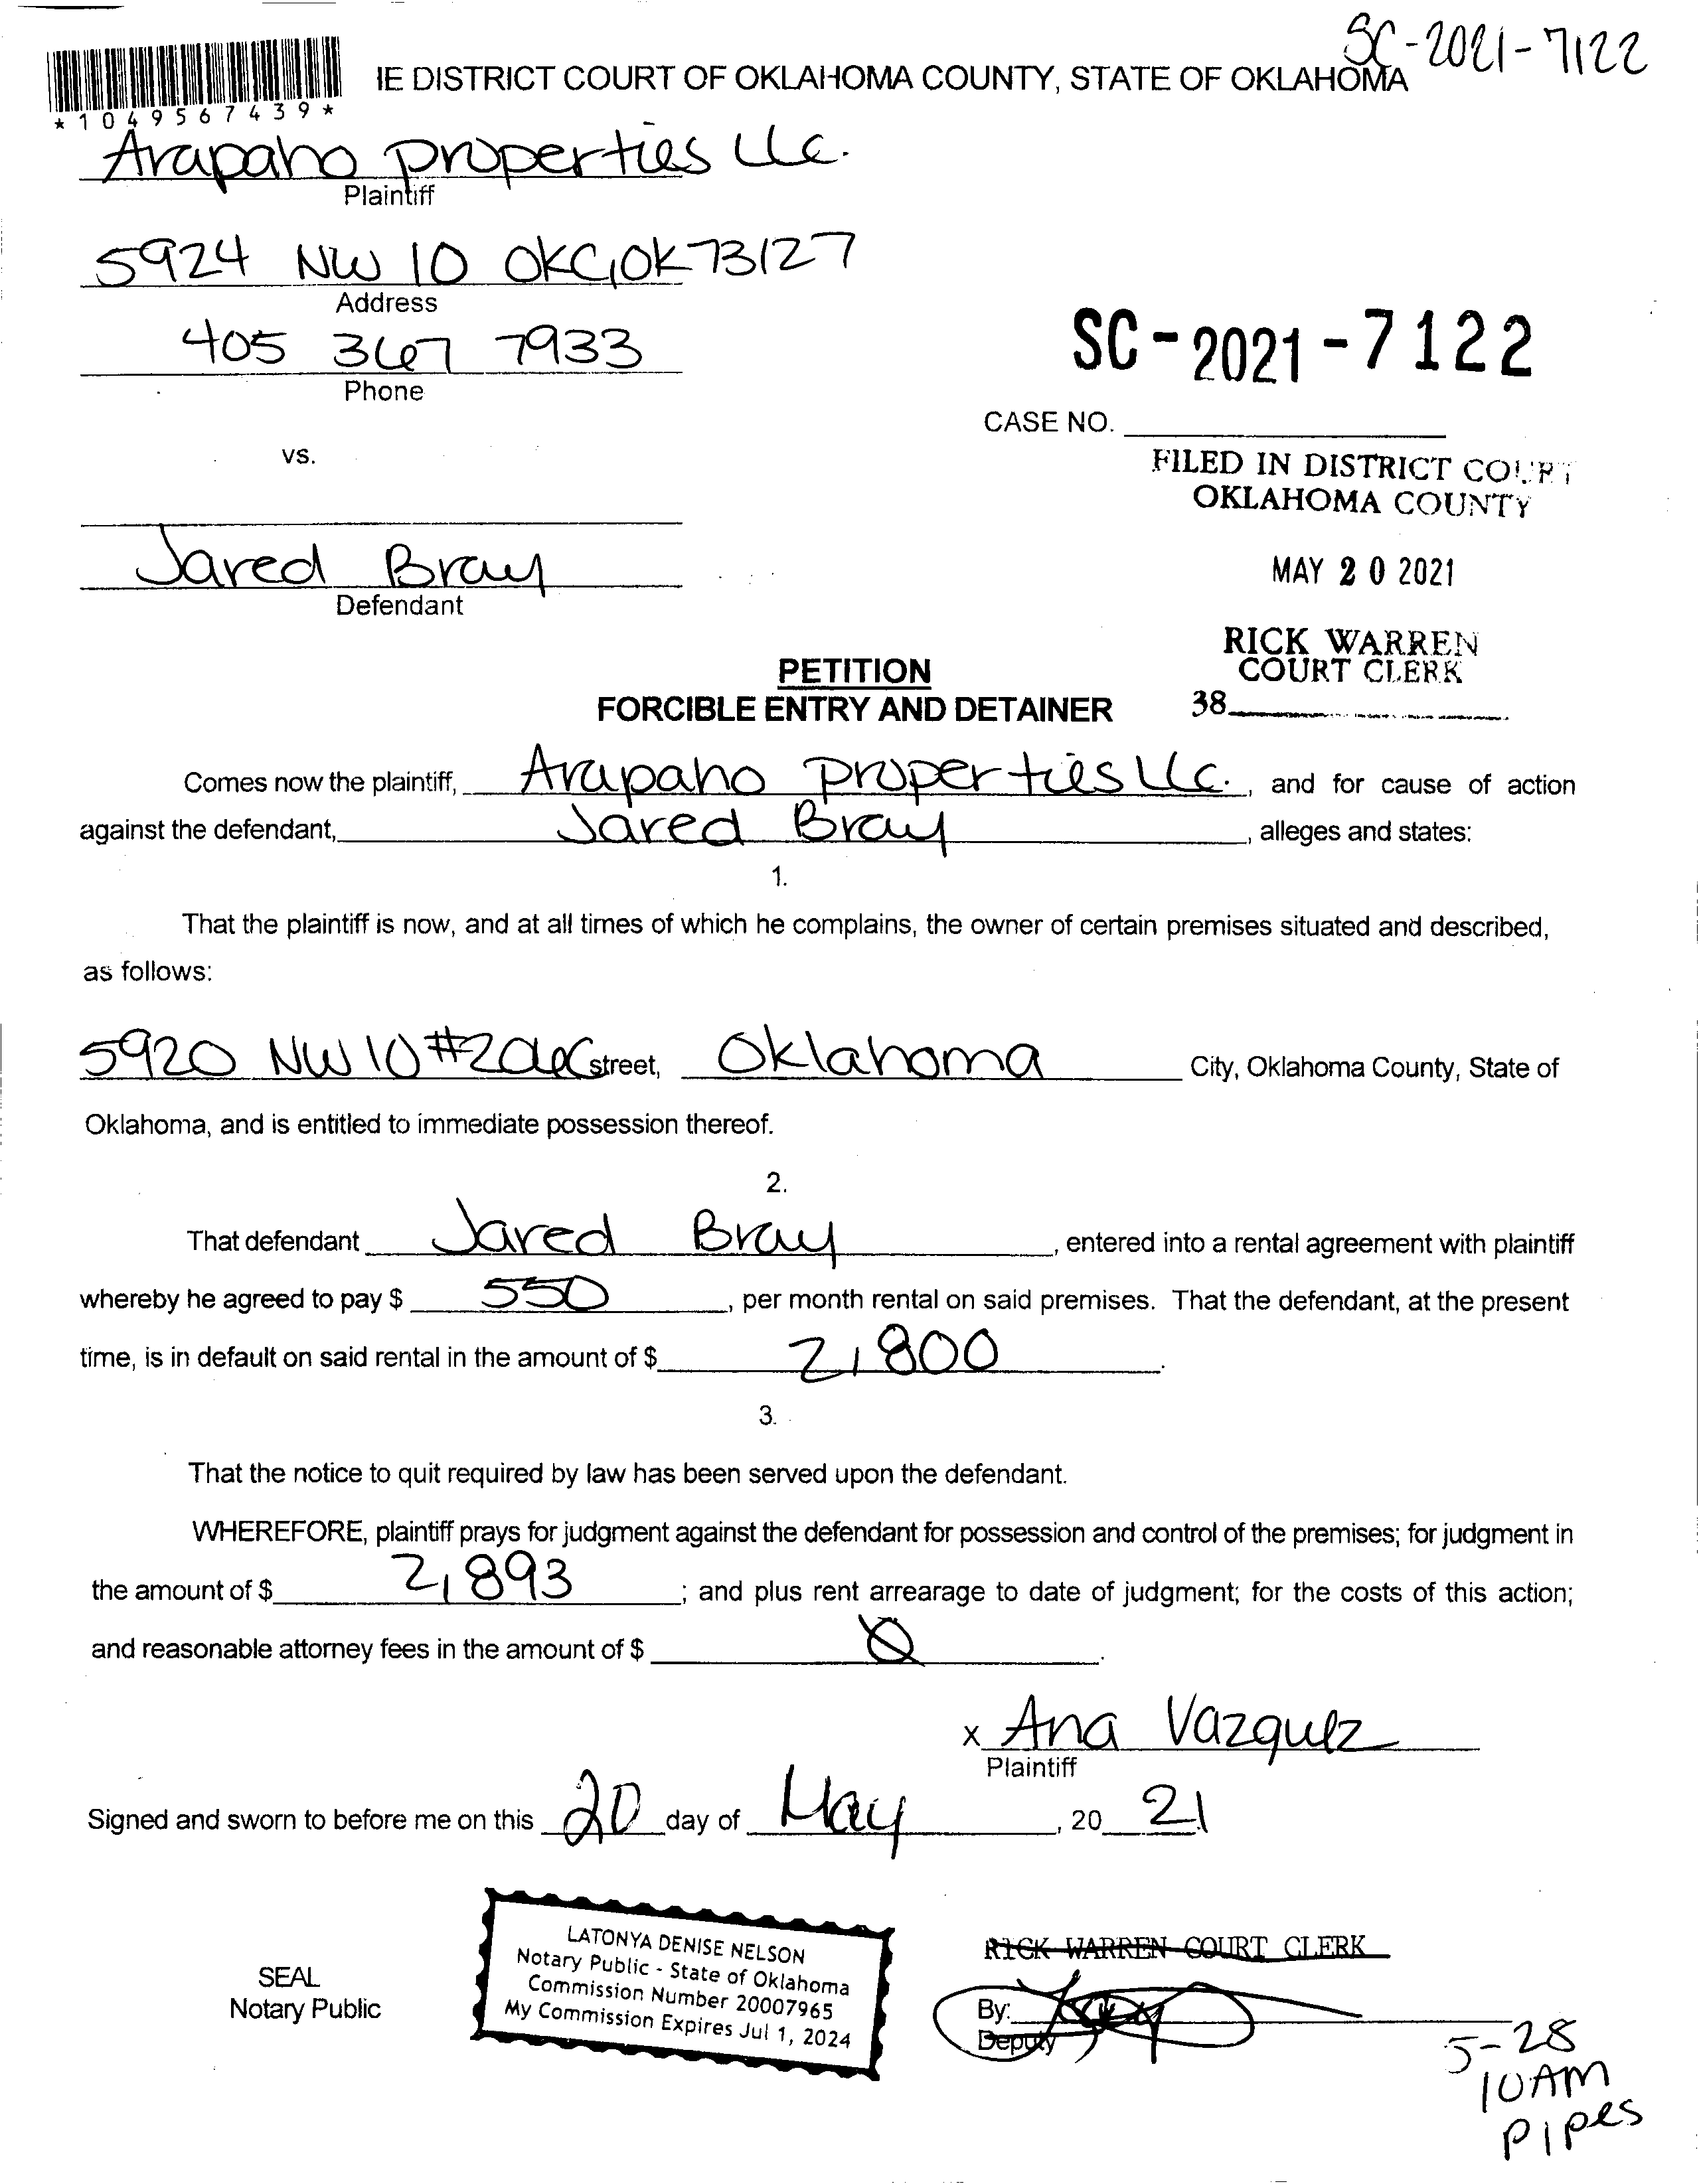 SC-2021-7122
IE DISTRICT COURT OF OKLAHOMA COUNTY, STATE OF OKLAHOMA
*1049567439*
Arapaho properties LLC.
Plaintiff
5924 NW 10 OKC, OK 73127
Address
405 367 7933
Phone
SC-2021-7122
CASE NO.
vs.
FILED IN DISTRICT COURT
OKLAHOMA COUNTY
Jared Bray
Defendant
MAY 20 2021
RICK WARREN
COURT CLERK
38
PETITION
FORCIBLE ENTRY AND DETAINER
Comes now the plaintiff, Arapaho properties LLC. , and for cause of action
against the defendant, Jared Bray , alleges and states:
1.
That the plaintiff is now, and at all times of which he complains, the owner of certain premises situated and described,
as follows:
5920 NW 10 street, Oklahoma City, Oklahoma County, State of
Oklahoma, and is entitled to immediate possession thereof.
2.
That defendant Jared Bray , entered into a rental agreement with plaintiff
whereby he agreed to pay $ 550 , per month rental on said premises. That the defendant, at the present
time, is in default on said rental in the amount of $ 2,800 .
3.
That the notice to quit required by law has been served upon the defendant.
WHEREFORE, plaintiff prays for judgment against the defendant for possession and control of the premises; for judgment in
the amount of $ 2,893 ; and plus rent arrearage to date of judgment; for the costs of this action;
and reasonable attorney fees in the amount of $ Ø .
x Ana Vazquez
Plaintiff
Signed and sworn to before me on this 20 day of May , 20 21
SEAL
Notary Public
LATONYA DENISE NELSON
Notary Public - State of Oklahoma
Commission Number 20007965
My Commission Expires Jul 1, 2024
RICK WARREN COURT CLERK
By:
Deputy
5-28
10AM
Pipes